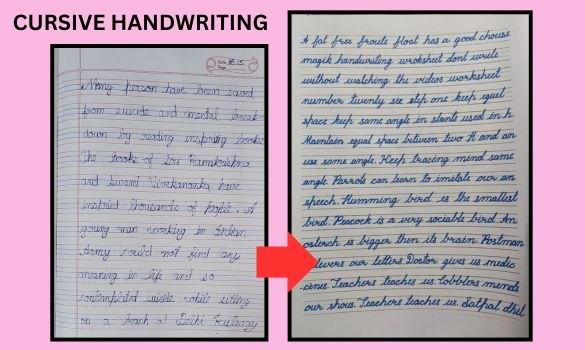 CURSIVE HANDWRITING
Many person have been saved
from suicide and mental break-
down by reading inspiring books
The books of Sri Ramakrishna
and Swami Vivekananda have
inspried thousands of people. A
young man working in Indian
Army could not find any
meaning in life and so
contemplated suicide while sitting
on a beach at Delhi
A fat free froute float has a good chouse
magik handwriting wroksheet dont write
without watching the vidios worksheet
number twenty six step one keep equel
space keep same angle in slants used in h.
Maintain equal space between two H and an
use same angle. Keep tracing mind same
angle. Parrots can learn to imitate our an
speech. Humming bird is the smallest
bird. Peacock is a very sociable bird. An
osterch is bigger then its brain. Postman
levers our letters. Doctor gives us medic
-cines. Teachers teaches us. Cobblers mends
our shous. Teachers teaches us. Satpal dhil